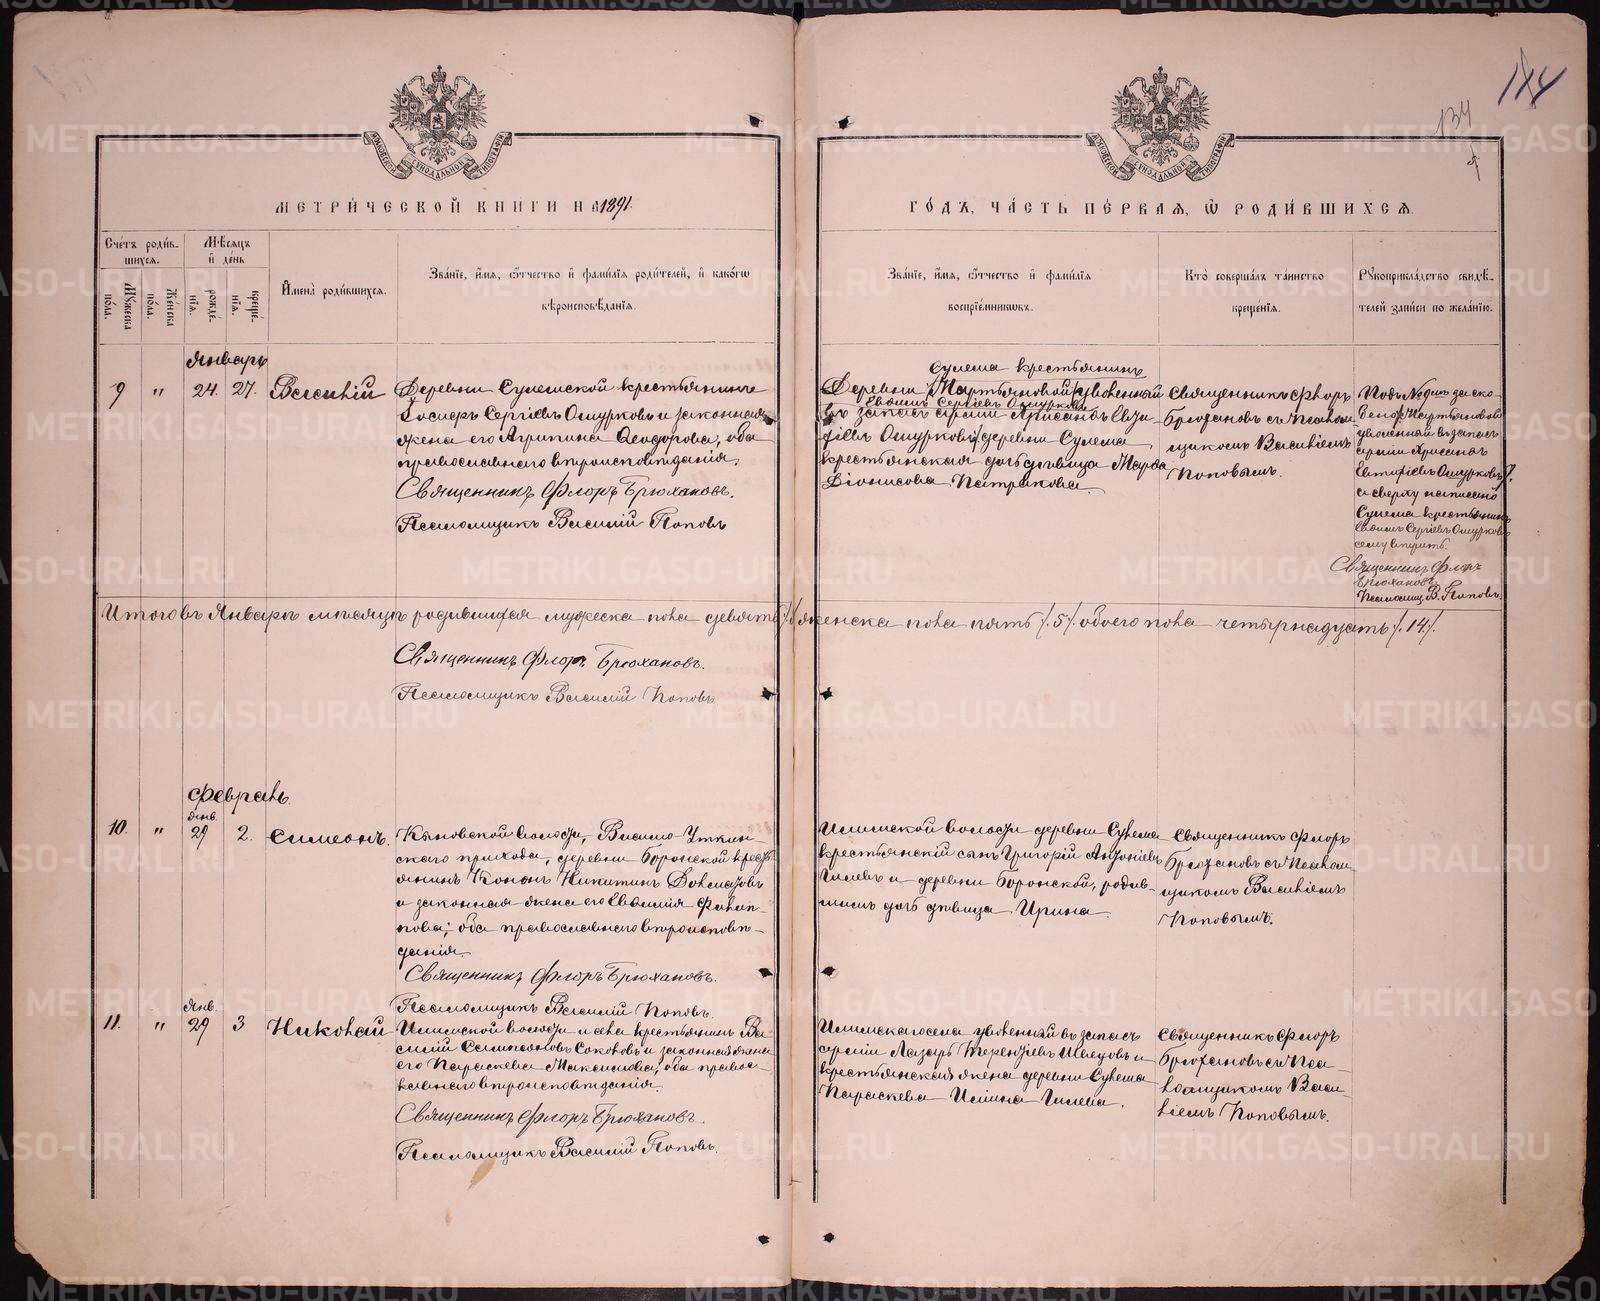 114
134
МЕТРИЧЕСКОЙ КНИГИ НА 1891.
ГОДЪ, ЧАСТЬ ПЕРВАЯ, Ѡ РОДИВШИХСЯ.
Счетъ родившихся.
Мужеска пола.
Женска пола.
Мѣсяцъ и день
рожденія.
крещенія.
Имена родившихся.
Званіе, имя, отчество и фамилія родителей, и какогѡ
вѣроисповѣданія.
Званіе, имя, отчество и фамилія
воспріемниковъ.
Кто совершалъ таинство
крещенія.
Рукоприкладство свидѣ-
телей записи по желанію.
Январь
9 " 24. 27. Василій
Деревни Сулемской крестьянинъ
Іосифъ Сергіевъ Ошурковъ и законная
жена его Агрипина Ѳеодорова, оба
православнаго вѣроисповѣданія.
Священникъ Флоръ Брюхановъ.
Псаломщикъ Василій Поповъ
Сулема крестьянинъ
Деревни /Мартьяновой уволенный
Евѳимъ Сергіевъ Ошурковъ
въ запасъ арміи
Ошурковъ/ деревни Сулема
крестьянская дочь дѣвица Марѳа
Діонисова Патракова.
Священникъ Флоръ
Брюхановъ съ Псалом-
щикомъ Василіемъ
Поповымъ.
Подъ № 9 за ско-
бено/Мартьяновой
уволенный въ запасъ
арміи
Ошурковъ/.
а сверху написано
Сулема крестьянинъ
Евѳимъ Сергіевъ Ошурковъ
сему вѣрить.
Священникъ Флоръ
Брюхановъ
Псаломщ. В. Поповъ.
Итого въ Январѣ мѣсяцѣ родившихся мужеска пола девять /9/ женска пола пять /.5/. обоего пола четырнадцать /.14/.
Священникъ Флоръ Брюхановъ.
Псаломщикъ Василій Поповъ
Февраль.
Янв.
10. " 29 2. Симеонъ.
Кыновской волости, Висимо-Уткин-
скаго прихода, деревни Боронской кресть-
янинъ Кононъ Никитинъ Долматовъ
и законная жена его Евѳимія Филип-
пова; оба православнаго вѣроисповѣ-
данія.
Священникъ Флоръ Брюхановъ.
Псаломщикъ Василій Поповъ.
Илимской волости деревни Сулема
крестьянскій сынъ Григорій Антоніевъ
Гилевъ и деревни Боронской, родив-
шихъ дочь дѣвица Ирина.
Священникъ Флоръ
Брюхановъ съ Псалом-
щикомъ Василіемъ
Поповымъ.
Янв.
11. " 29 3 Николай
Илимской волости и села крестьянинъ Ва-
силій Сампсоновъ Соколовъ и законная жена
его Параскева Максимова, оба право-
славнаго вѣроисповѣданія.
Священникъ Флоръ Брюхановъ.
Псаломщикъ Василій Поповъ.
Илимскаго села уволенный въ запасъ
арміи Лазарь Терентіевъ Швецовъ и
крестьянская жена деревни Сулема
Параскева Ильина Гилева.
Священникъ Флоръ
Брюхановъ съ Пса-
ломщикомъ Васи-
ліемъ Поповымъ.
METRIKI.GASO-URAL.RU